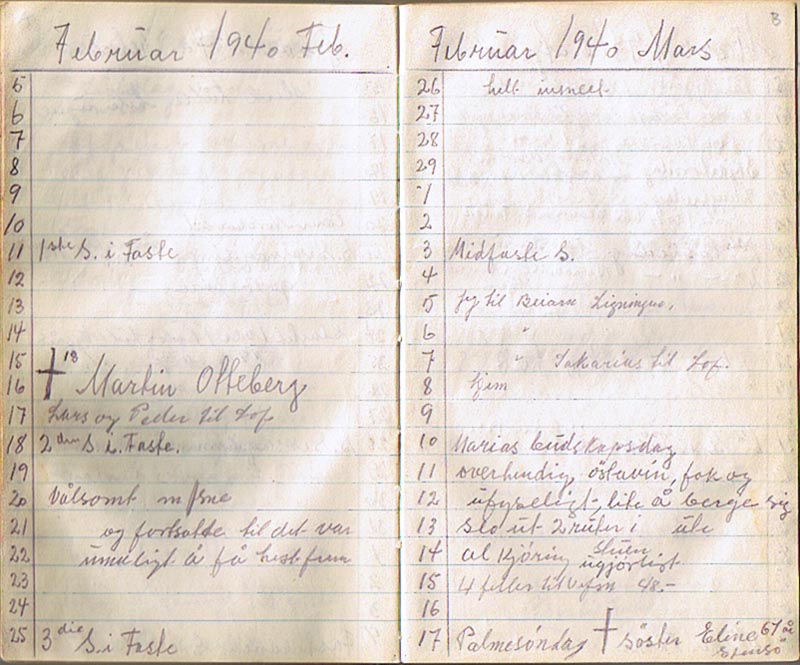 Februar 1940 Feb.
5
6
7
8
9
10
11 1ste S. i Faste
12
13
14
15 18
16 Martin Olteberg
17 Lars og Peder til Lof
18 2den S. i. Faste.
19
20 Vålsomt m/sne
21 og fortsatte til det var
22 umuligt å få hest frem
23
24
25 3die S. i Faste
Februar 1940 Mars
3
26 helt innsnet
27
28
29
1
2
3 Midfaste S.
4
5 Jeg til Beiarn Ligningen.
6 "
7 " Sakarias til Lof.
8 hjem
9
10 Marias budskapsdag
11 overhendig østavin, fok og
12 ufyseligt, lite å berge sig
13 slo ut 2 ruter i ute
14 al kjøring stuen
ugjørligt
15 4 feller til 48.-
16
17 Palmesøndag søster Eline 67 år
Stensø